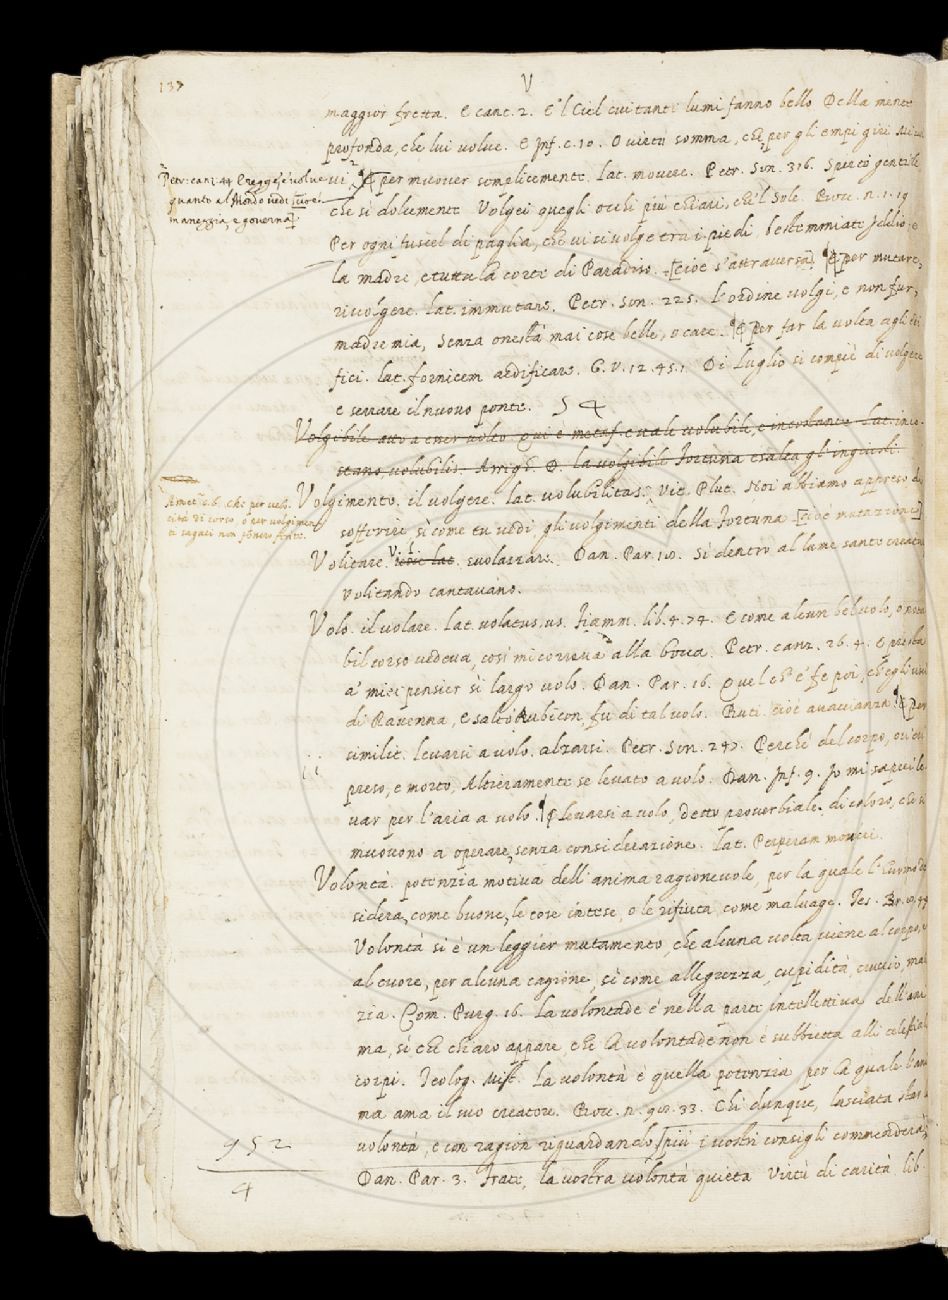 137
V
maggior fretta. E canz. 2. E 'l Ciel cui tanti lumi fanno bello Della mente
profonda, che lui volve. E Inf. c. 10. O virtù somma, che per gli empi giri Mi
vi. E per muover semplicemente. lat. movere. Petr. Son. 316. Spirto gentile
Petr. canz. 44. E regge, e volve
quanto al Mondo vedi [cioè
maneggia, e governa]
che sì dolcemente Volgei quegli occhi più chiari, che 'l Sole. Bocc. n. 1. 19
Per ogni fuscel di paglia, che vi si volge tra i piedi, bestemmiate Iddio e
la madre, e tutta la corte di Paradiso. [cioè s'attraversa]. E per mutare,
rivolgere. lat. immutare. Petr. Son. 225. L'ordine volgi, e non fur,
madre mia, Senza onestà mai cose belle, o care. E per far la volta agli edi
fici. lat. fornicem aedificare. G. V. 12. 45. 1. Di Luglio si compiè di volgere
e serrare il nuovo ponte. 54
Volgibile atto a esser volto. qui è metaf. e vale volubile, e incostante. Lat. inco
stans, volubilis. Arrigh. O. la volgibile Fortuna esalta gl'ingiusti.
Volgimento. il volgere. lat. volubilitas. Vit. Plut. Noi abbiamo appreso di
Amet. 26. Chi per velo
cità di corso, o per volgimen
ti sagaci non poneo
sofferire sì come tu vedi, gli volgimenti della Fortuna [cioè mutazione]
Volitare. svolazzare. Dan. Par. 18. Sì dentro al lume sante creature
volitando cantavano.
Volo. il volare. lat. volatus, us. Fiamm. lib. 4. 74. E come alcun bel volo, o nota
bil corso vedeva, così mi correva alla bocca. Petr. canz. 26. 4. E presta
a' miei pensier sì largo volo. Dan. Par. 16. Quel ch' e' fe poi, ch' egli uscì
di Ravenna, e saltò Rubicon, fu di tal volo. But. cioè avacianza. E per
similit. levarsi a volo. alzarsi. Petr. Son. 247. Perchè del corpo, ov' eri
preso, e morto, Altieramente se levato a volo. Dan. Inf. 9. Io mi saprei le
var per l'aria a volo. E levarsi a volo, detto proverbiale. di coloro, che si
muovono a operare, senza considerazione. lat. Perperam moveri.
Volontà. potenzia motiva dell' anima ragionevole, per la quale l'huomo de
sidera, come buone, le cose intese, o le rifiuta, come malvage. Tes. Br.
Volontà si è un leggier mutamento, che alcuna volta viene al corpo, e
al cuore, per alcuna cagione, sì come allegrezza, cupidità, cruccio, mali
zia. Com. Purg. 16. La volontade è nella parte intellettiva dell' ani
ma, sì che chiaro appare, che la volontade non è subbietta alli celestiali
corpi. Teolog. Mist. La volontà è quella potenzia per la quale l'ani
ma ama il suo creatore. Bocc. n. 92. 33. Chi dunque, lasciata star la
volontà, e con ragion riguardando, più i vostri consigli commenderà
Dan. Par. 3. Frate, la nostra volontà quieta Virtù di carità
952
4